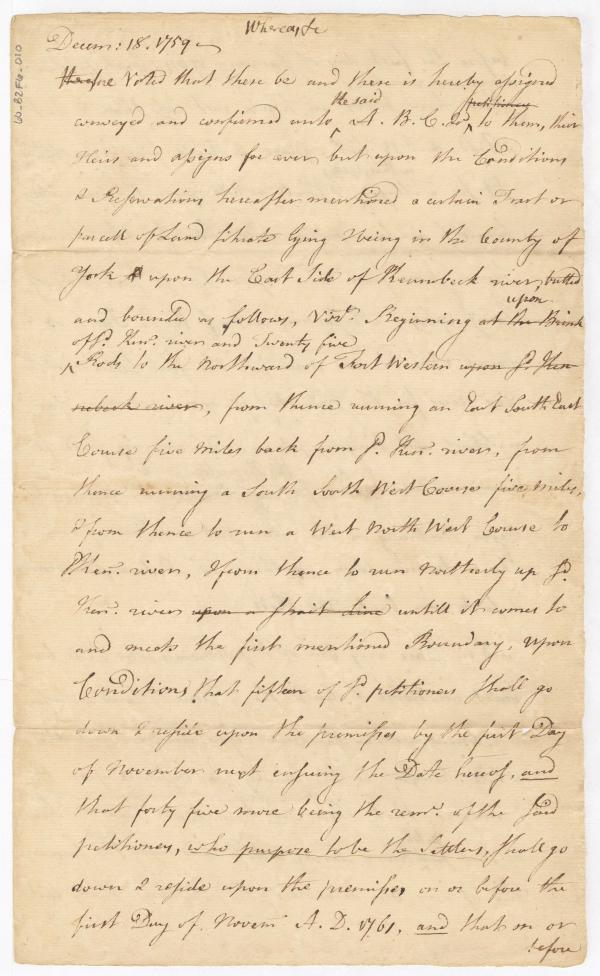 Whereas, &c
Decem: 18. 1759
Therefore Voted that there be and there is hereby assigned
the said petitioners
conveyed and confirmed unto ^ A. B. C. &c ^ to them, their
Heirs and assigns for ever but upon the Conditions
& Reservations hereafter mentioned a certain Tract or
parcell of Land situate lying & being in the County of
York upon the East Side of Kennebeck river, butted
upon
and bounded as follows, Vizt. Beginning at the Brink
of sd. Ken: river and Twenty five
^ Rods to the Northward of Fort Western upon sd. Ken
nebeck river, from thence running an East South East
Course five miles back from sd. Ken: river, from
thence running a South South West Course five miles,
& from thence to run a West North West Course to
sd. Ken: river, & from thence to run Northerly up sd.
Ken: river upon a strait Line untill it comes to
and meets the first mentioned Boundary, Upon
Conditions that fifteen of sd. petitioners shall go
down & reside upon the premisses by the first Day
of November next ensuing the Date hereof, and
that forty five more being the remr. of the said
petitioners, who purpose to be the Settlers, shall go
down & reside upon the premisses on or before the
first Day of Novemr. A. D. 1761, and that on or
before
60-B2F6-010